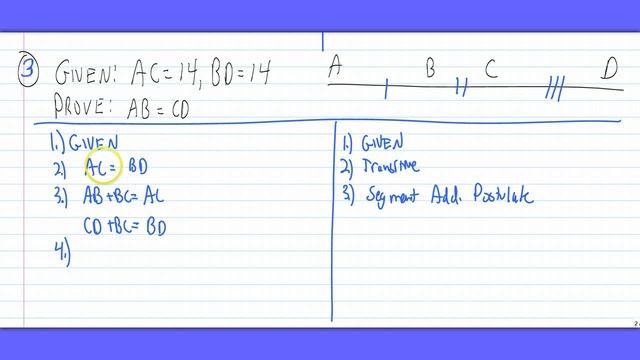 3 GIVEN: AC=14, BD=14
PROVE: AB=CD
A B C D
1.) GIVEN
2.) AC= BD
3.) AB+BC=AC
CD+BC=BD
4.)
1.) GIVEN
2.) Transitive
3.) Segment Add. Postulate